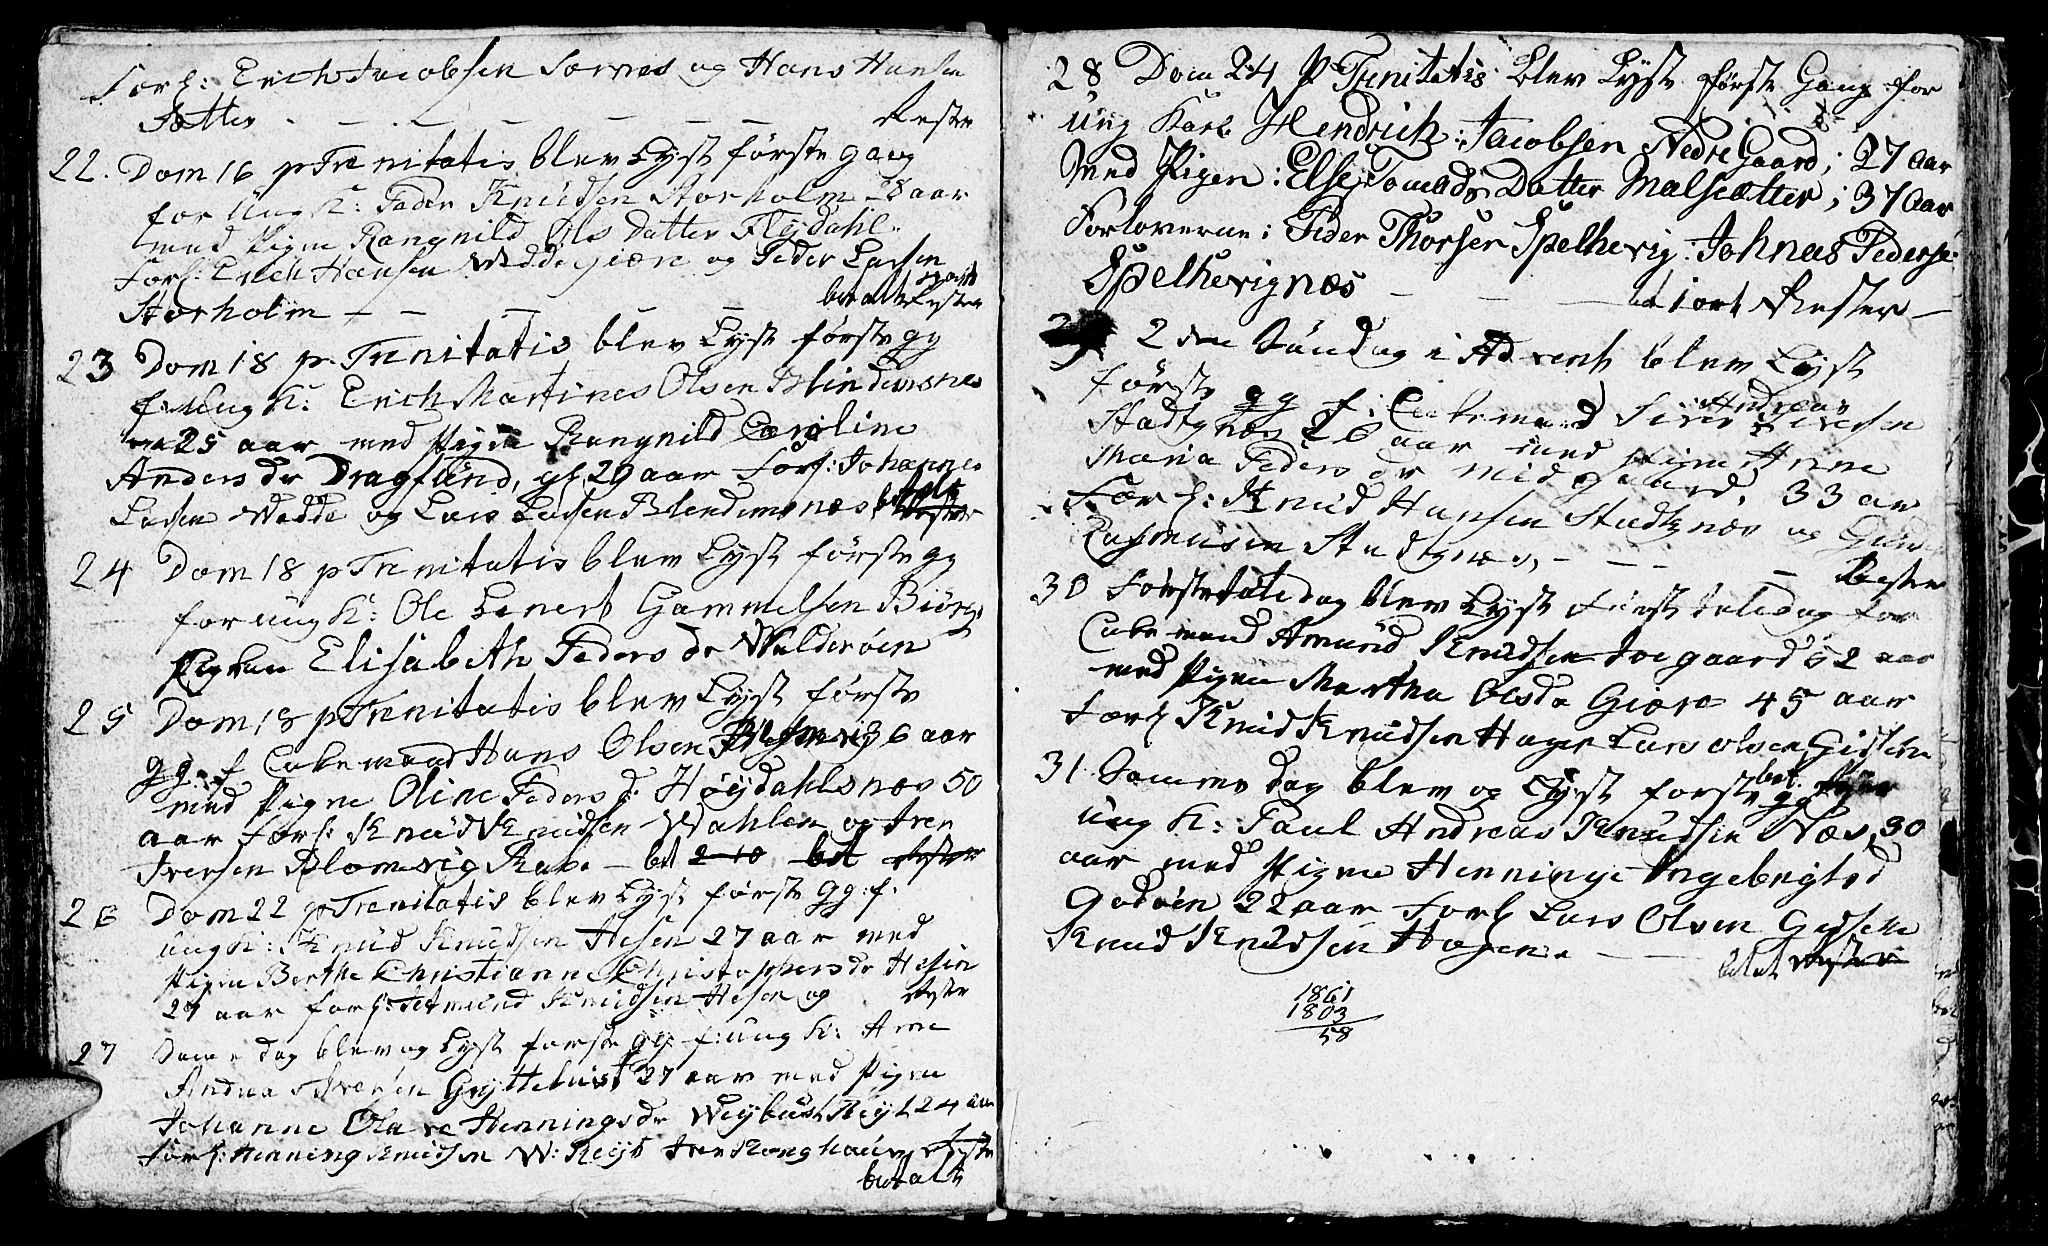 Forl: Erich Jacobsen Sørnes og Hans Hansen
Sætter - - - - - - Rester
22. Dom 16 p Trenitatis blev Lyst første gang
for Ung K: Peder Knudsen Storholm 28 aar
med Pigen Rangnild Ols Datter Flydahl
Forl: Erich Hansen Wedde Giøre og Peder Larsen
Storholm - - - - betalt Rester
23 Dom 18 p. Trenitatis blev Lyst første gg
f: Ung K: Erich Martines Olsen Blindemsnes
25 aar med Pigen Rangnild Caroline
Anders dr Dragsund, 29 aar Forl: Johannes
Larsen Wedde og Lars Larsen Blendemsnæs betalt Rester
24 Dom 18 p Trenitatis blev Lyst første gg
for ung K: Ole Lenert Gammelsen Biørge
Pigken Elisabeth Peders dr Walderøen
25 Dom 18 p Trenitatis blev Lyst første
gg. f Enkemand Hans Olsen 36 aar
med Pigen Oline Peders dr Høydahlsnæs 50
aar Forl: Knud Knudsen Wahlen og Iver
Iversen Blomvig - bet 2-10 bet Rester
26 Dom 22 p Trenitatis blev Lyst første gg: f.
ung K: Knud Knudsen Hesen 27 aar med
Pigen Berthe Christianne Christophersdr Hesen
27 aar forl: Amund Knudsen Hesen og Rester
27 Samme dag blev og Lyst første gg f: ung K: Arne
Andreas Iversen Gryttehust 27 aar med Pigen
Johanne Olave Henningsdr Weybust Røyt 24 aar
Forl: Henning Knudsen W: Røyt Iver Ronghaug Rester
betalt
28 Dom 24 P Trenitatis Blev Lyst Første Gang for
Ung Karl Hendrich: Jacobsen Nedre Gaard; 27 Aar
Med Pigen: Else Tomads Datter Malsætter; 37 Aar
Forloverne: Peder Thorsen Spelhevig: Johnas Peders:
Spelhevignæs - - - bet 1 ort Rester -
2 2den Søndag i Advent blev Lyst
første gg f: Enkemand Siver Andreas Siversen
Stadtgnæs 26 aar med Pigen Anne
Maria Peders dr Midgaard, 33 ar
Forl: Knud Hansen Stadtgnæs og
Rasmusen Stadtgnæs, - - - - Rester
30 Første Juledag blev Lyst Første Juledag for
Enkemand Amund Knudsen Joegaard 52 aar
med Pigen Martha Olsdr Giøre 45 aar
Forl Knud Knudsen Hagen Lars Olsen Gidsken
31 Samme dag blev og Lyst første gg bet
ung K: Paul Andreas Knudsen Næs, 30
aar med Pigen Henninge Ingebrigtsd
Godøen 22 aar Forl Lars Olsen Gidsken
Knud Knudsen Hagen. - - betalt Rester
1861
1803
58